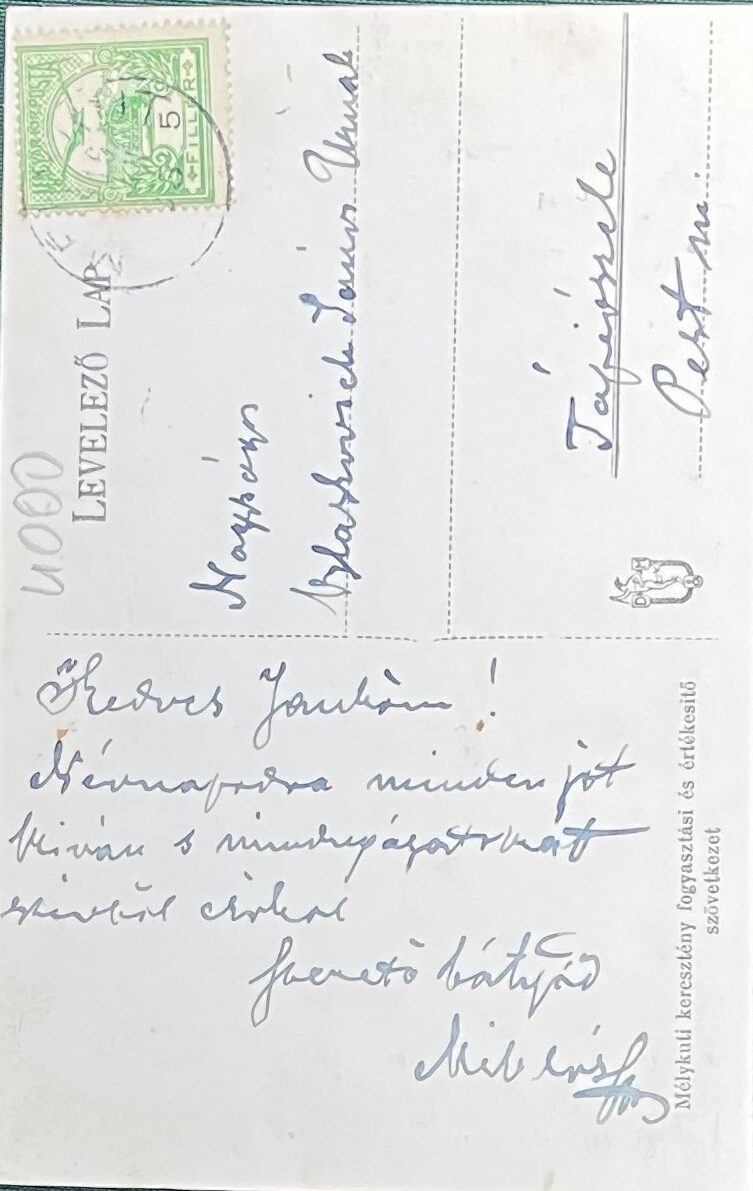 Kedves Jankóm!
Névnapodra minden jót
kiván s mindnyájatokat
szivből csókol
Szerető bátyád
Mélykuti keresztény fogyasztási és értékesitő
szövetkezet
4000
LEVELEZŐ LAP
5
FILLÉR
Nagyságos
János Urnak
Tápiószele
Pest m.
D H